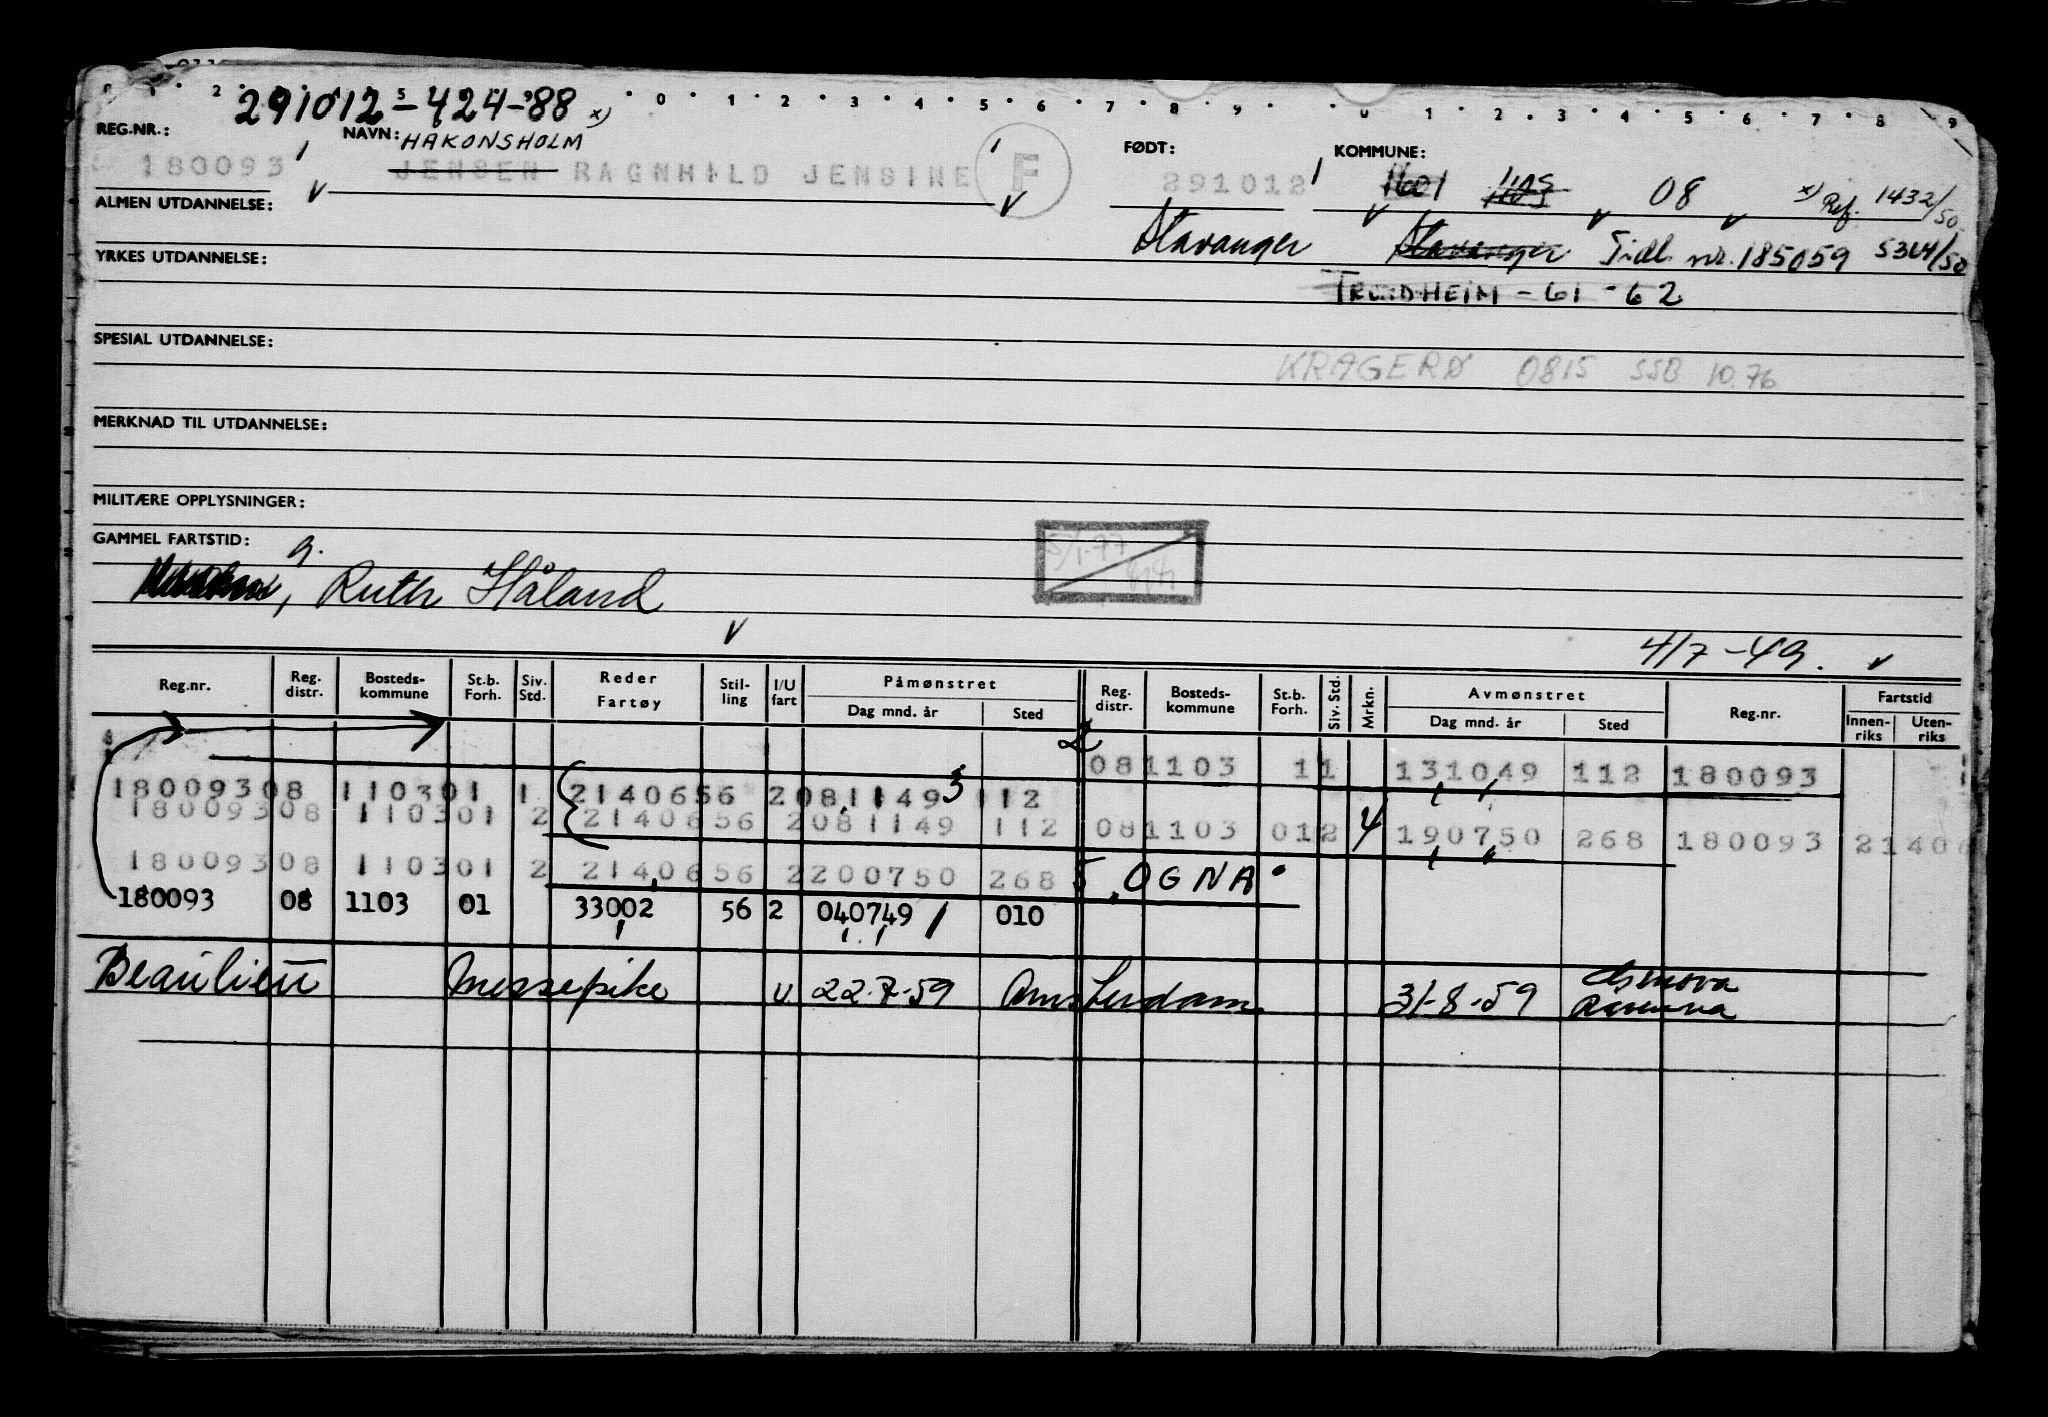 291012-424-88 x)
0 1 2 3 4 5 6 7 8 9 0 1 2 3 4 5 6 7 8 9
REG.NR.: NAVN: HAKONSHOLM FØDT: KOMMUNE:
180093 JENSEN RAGNHILD JENSINE F 291012 1601 08 x) Ref. 1432/50
ALMEN UTDANNELSE:
Stavanger Stavanger Tidl. nr. 185059 5364/50
YRKES UTDANNELSE:
TRONDHEIM - 61 - 62
SPESIAL UTDANNELSE:
KRAGERØ 0815 SSB 10.76
MERKNAD TIL UTDANNELSE:
MILITÆRE OPPLYSNINGER:
GAMMEL FARTSTID: g. 5/1-77
, Ruth Håland
4/7-49.
Reg.nr. Reg. distr. Bosteds-kommune St.b. Forh. Siv. Std. Reder Fartøy Stil-ling I/U fart Påmønstret Dag mnd. år Sted Reg. distr. Bosteds-kommune St.b. Forh. Siv. Std. Mrkn. Avmønstret Dag mnd. år Sted Reg.nr. Fartstid Innen-riks Uten-riks
2 081103 11 131049 112 180093
18009308 110301 1 2140656 2081149 3 112
18009308 110301 2 2140656 2081149 112 081103 012 4 190750 268 180093 2140
18009308 110301 2 2140656 2200750 268 5 OGNA
180093 08 1103 01 33002 56 2 040749 1 010
Beaulieu Messepike u 22-7-59 Amsterdam 31-8-59 Ravenna